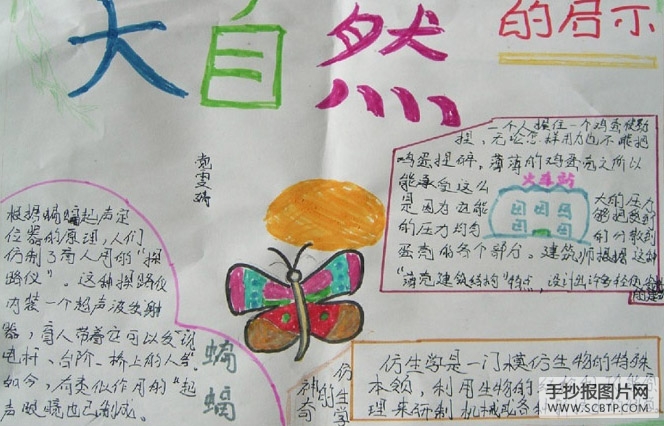 大自然
的启示
党雯瑞
一个人握住一个鸡蛋使劲
捏,无论怎样用力也不能把
鸡蛋捏碎,薄薄的鸡蛋壳之所以
能承受这么 大的压力
是因为它能 够把受到
的压力均匀 的分散到
蛋壳的各个部分。建筑师根据这种
“薄壳建筑结构”特点,设计出许多轻便
火车站
根据蝙蝠超声定
位器的原理,人们
仿制了盲人用的“探
路仪”。这种探路仪
内装一个超声波发射
器,盲人带着它可以发现
电杆、台阶、桥上的人等
如今,有类似作用的“超
声眼镜也已制成。
蝙蝠
神奇的仿生学
仿生学是一门模仿生物的特殊
本领,利用生物的
理来研制机械或各
手抄报图片网
WWW.SCBTP.COM